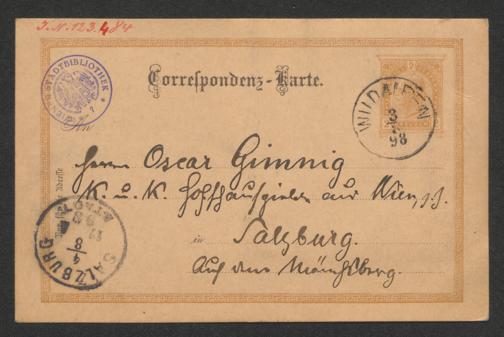 J.N. 123.484
STADTBIBLIOTHEK
Correspondenz-Karte.
An
WILDALPEN
3
8
98
Herrn Oscar Gimnig
K. u. K. Hofschauspieler aus Wien, z.Z.
in Salzburg.
Auf dem Mönchsberg.
SALZBURG STADT
4
8
98